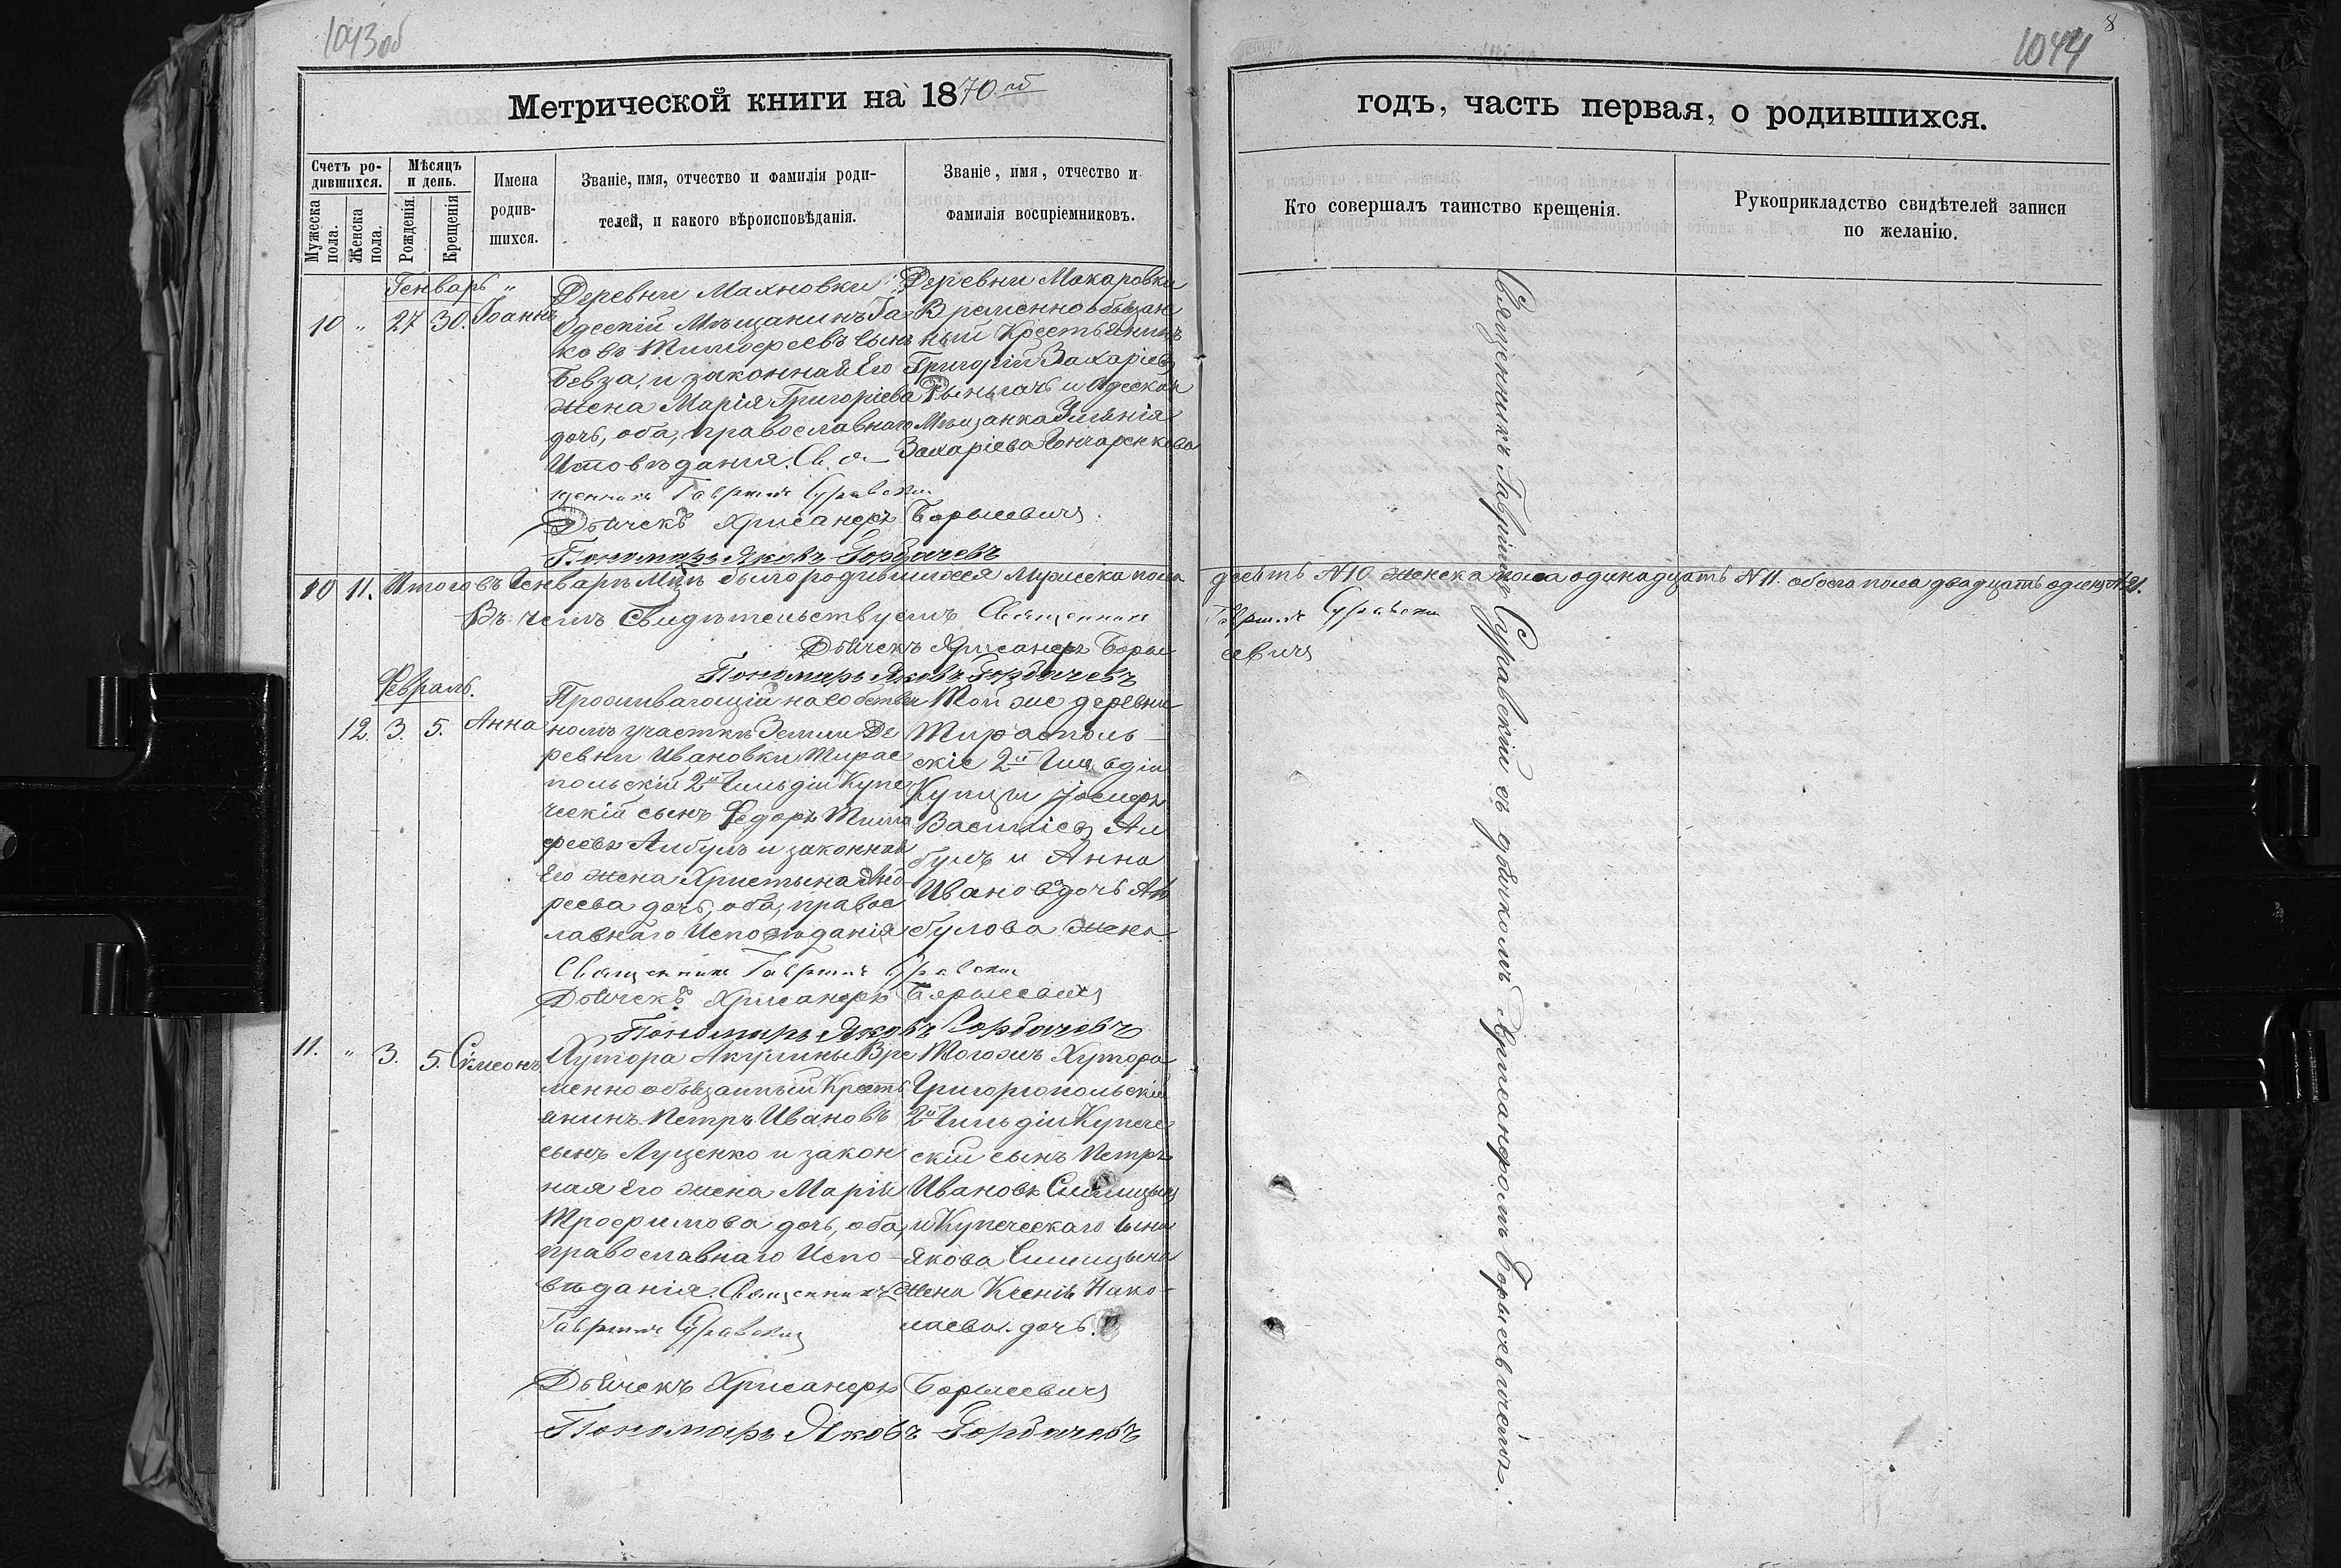 1043об
Метрической книги на 1870 й
Счетъ ро-
дившихся.
Мѣсяцъ
и день.
Имена
родив-
шихся.
Званіе, имя, отчество и фамилія роди-
телей, и какого вѣроисповѣданія.
Званіе, имя, отчество и
фамилія воспріемниковъ.
Мужеска
пола.
Женска
пола.
Рожденія.
Крещенія
Генварь "
10 " 27 30. Іоаннъ
Деревни Махновки
Одескій Мѣщанинъ Іа
ковъ Тимофеевъ сынъ
Бевза, и законная Его
жена Марія Григоріева
дочь, оба, православнаго
Исповѣданія. Свя
щенникъ Гавріилъ Суравскій
Дьячекъ Хрисанфъ Борысевичъ
Пономарь Яковъ Горбачевъ
Деревни Макаровки
Временнообязан
ный Крестьянинъ
Григорій Захаріевъ
и Одеская
Мѣщанка
Захаріева Гончаренкова
10 11. Итого въ Генварѣ Мцѣ было родившихся Мужеска пола
Въ чемъ Свидѣтельствуемъ Священникъ
Дьячекъ Хрисанфъ Борыс
Пономарь Яковъ Горбачевъ
Февраль.
12. 3. 5. Анна
Проживающій на собствен
номъ участкѣ Земли Де
ревни Ивановки Тирас
польскій 2й Гильдіи Купе
ческій сынъ Федоръ Тимо
феевъ Анбулъ и законная
Его жена Христына Анд
реева дочь, оба, правос
лавнаго Исповѣданія
Священникъ Гавріилъ Суравскій
Дьячекъ Хрисанфъ Борысевичъ
Пономарь Яковъ Горбачевъ
Той же деревни
Тираспол
скіе 2й Гильдіи
Купцы Іосифъ
Василіевъ Ан
булъ и Анна
Иванова дочь Ан
булова жена
11. " 3. 5. Сѵмеонъ
Хутора Акулины Вре
менно обязанный Кресть
янинъ Петръ Ивановъ
сынъ Луценко и закон
ная Его жена Марія
Трофимова дочь, оба,
православнаго Испо-
вѣданія. Священникъ
Гавріилъ Суравскій
Дьячекъ Хрисанфъ Борысевичъ
Пономарь Яковъ Горбачевъ
Тогожъ Хутора
Григоріопольскій
2й Гильдіи Купече
скій сынъ Петръ
Ивановъ Синицынъ
и Купеческаго сына
Якова Синицына
жена Ксенія Нико-
лаева дочь.
8
1044
годъ, часть первая, о родившихся.
Кто совершалъ таинство крещенія.
Рукоприкладство свидѣтелей записи
по желанію.
десять N10 женска пола одинадцать N11. обоего пола двадцать одинъ N21.
Гавріилъ Суравскій
евичъ
Священникъ Гавріилъ Суравскій съ дьячкомъ Хрисанфомъ Борысевичемъ.